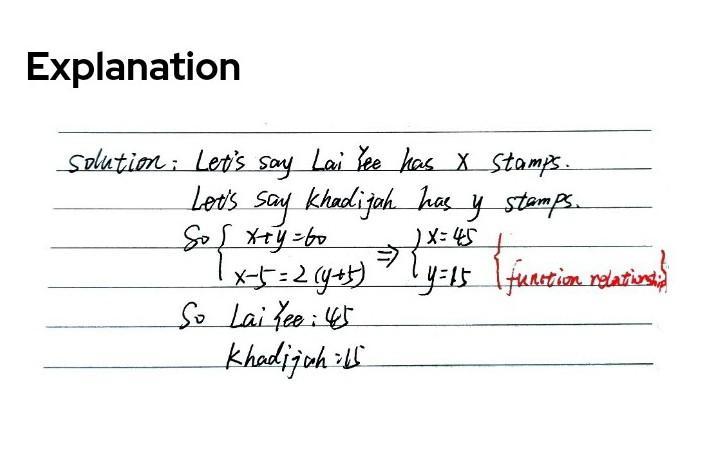 Explanation
Solution: Let's say Lai Yee has x stamps.
Let's say Khadijah has y stamps.
So { x+y=60 ⇒ { x=45
x-5=2(y+5) y=15 { function relationship }
So Lai Yee: 45
Khadijah: 15